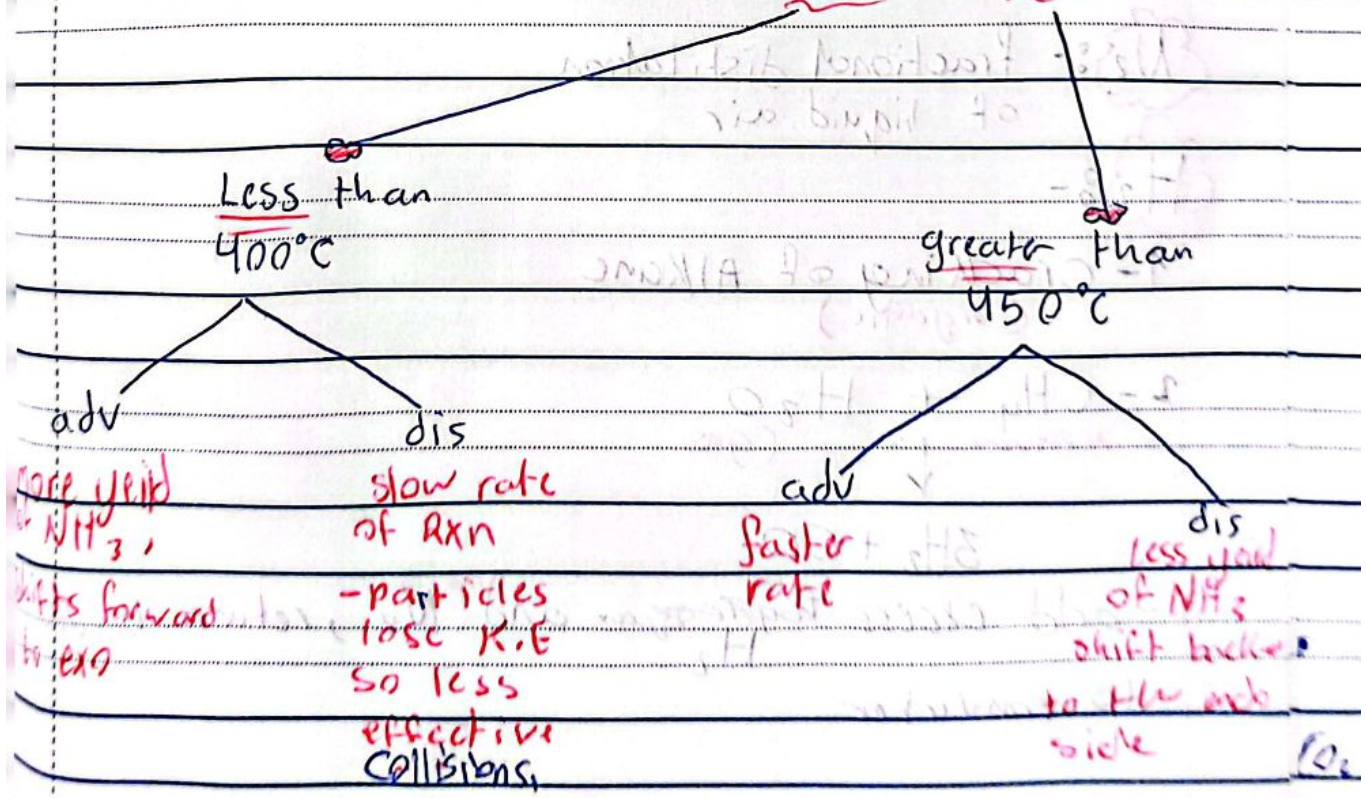 Less than
400°C
adv
dis
more yeild
NH3,
shifts forward
to exo
slow rate
of Rxn
-particles
lose K.E
so less
effective
collisions,
greater than
450°C
adv
dis
faster
rate
Less yeild
of NH3
shift backe
to the endo
side